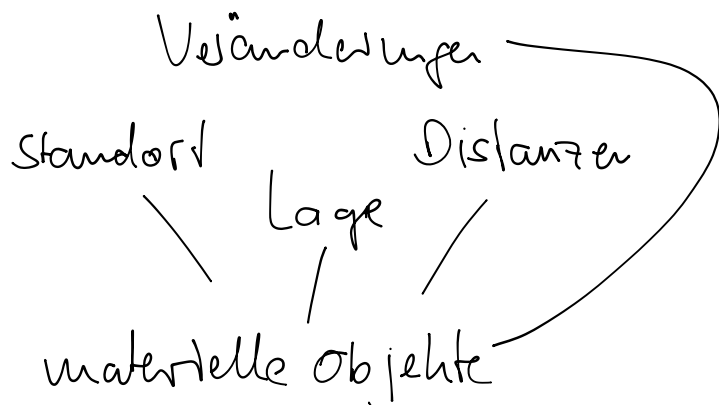 Veränderungen
Standort Distanzen
Lage
materielle Objekte